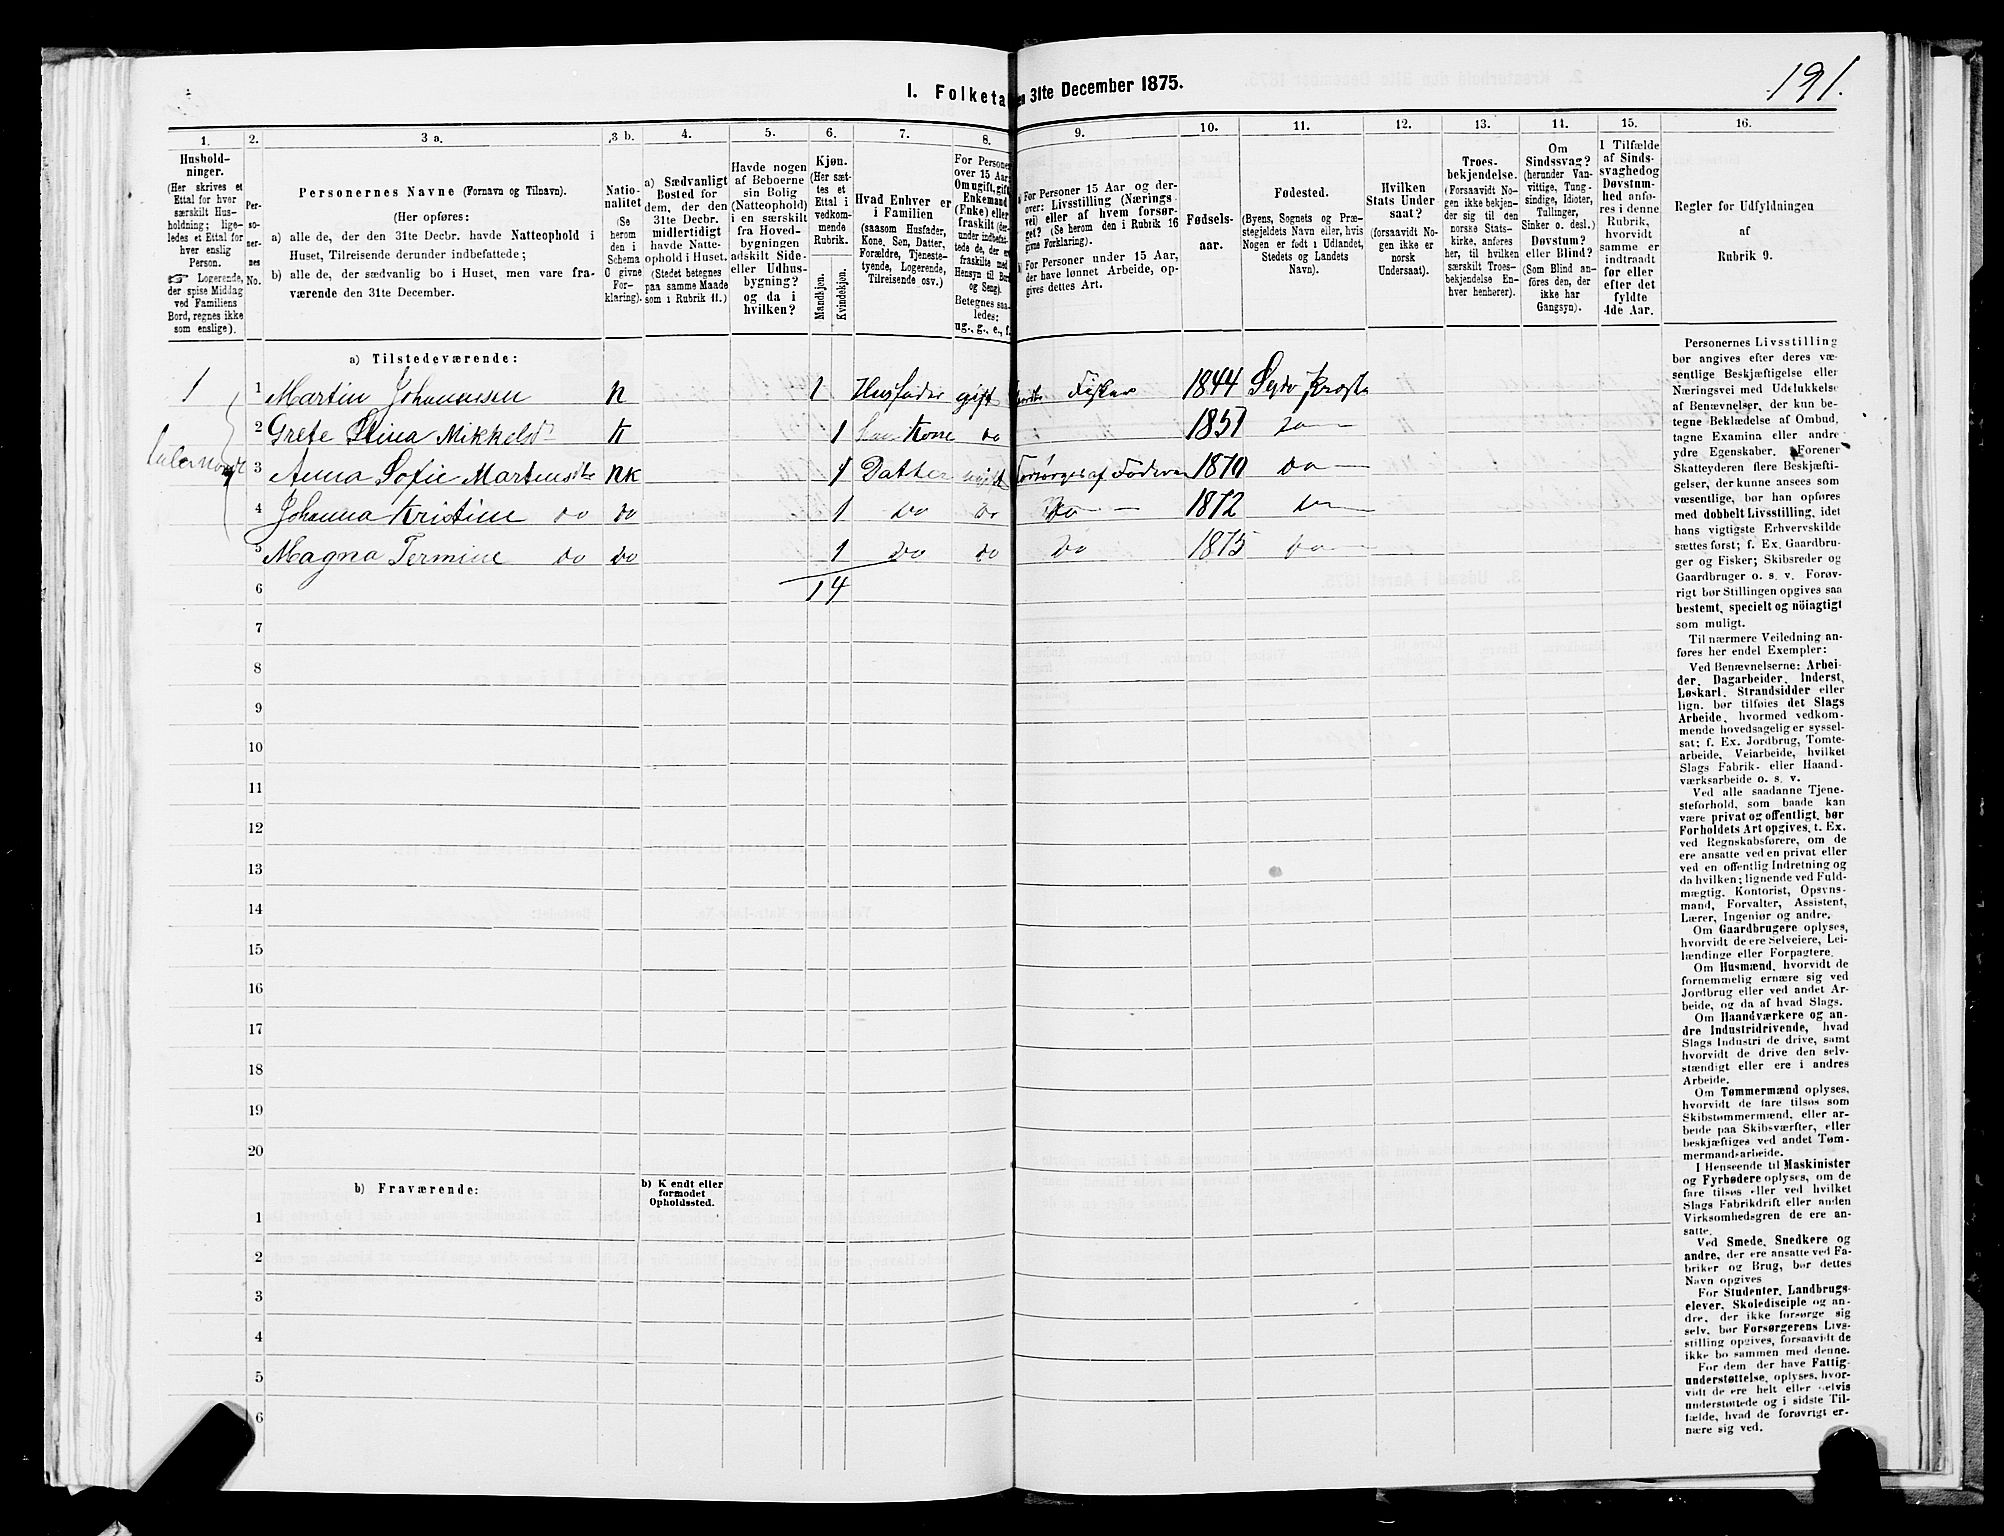 191.
I. Folketa en 31te December 1875.
1. 2. 3 a. 3 b. 4. 5. 6. 7. 8. 9. 10. 11. 12. 13. 14. 15. 16.
Hushold-
ninger.
(Her skrives et
Ettal for hver
særskilt Hus-
holdning; lige-
ledes et Ettal for
hver enslig
Person.
☞ Logerende,
der spise Middag
ved Familiens
Bord, regnes ikke
som enslige).
Per-
so-
ner-
nes
No.
Personernes Navne (Fornavn og Tilnavn).
(Her opføres:
a) alle de, der den 31te Decbr. havde Natteophold i
Huset, Tilreisende derunder indbefattede;
b) alle de, der sædvanlig bo i Huset, men vare fra-
værende den 31te December.
Natio-
nalitet
(Se
herom
den i
Schema
C givne
For-
klaring).
a) Sædvanligt
Bosted for
dem, der den
31te Decbr.
midlertidigt
havde Natte-
ophold i Huset.
(Stedet betegnes
paa samme Maade
som i Rubrik 11.)
Havde nogen
af Beboerne
sin Bolig
(Natteophold)
i en særskilt
fra Hoved-
bygningen
adskilt Side-
eller Udhus-
bygning?
og da i
hvilken?
Kjøn.
(Her sæt-
tes et
Ettal i
vedkom-
mende
Rubrik.
Mandkjøn.
Kvindekjøn.
Hvad Enhver er
i Familien
(saasom Husfader,
Kone, Søn, Datter,
Forældre, Tjeneste-
tyende, Logerende,
Tilreisende osv.)
For Personer
over 15 Aar:
Om ugift, gift,
Enkemand
(Enke) eller
fraskilt (der-
under indbefat-
tede de, der ere
fraskilte med
Hensyn til Bord
og Seng).
Betegnes saa-
ledes:
ug., g., e., f.
a) For Personer 15 Aar og der-
over: Livsstilling (Nærings-
vei) eller af hvem forsør-
get? (Se herom den i Rubrik 16
givne Forklaring).
For Personer under 15 Aar,
der have lønnet Arbeide, op-
gives dettes Art.
Fødsels-
aar.
Fødested.
(Byens, Sognets og Præ-
stegjeldets Navn eller, hvis
Nogen er født i Udlandet,
Stedets og Landets
Navn).
Hvilken
Stats Under
saat?
(forsaavidt No-
gen ikke er
norsk
Undersaat).
Troes-
bekjendelse.
(Forsaavidt No-
gen ikke bekjen-
der sig til den
norske Stats-
kirke, anføres
her, til hvilken
særskilt Troes-
bekjendelse En-
hver henhører).
Om
Sindssvag?
(herunder Van-
vittige, Tung-
sindige, Idioter,
Tullinger,
Sinker o. desl.)
Døvstum?
eller Blind?
(Som Blind an-
føres den, der
ikke har
Gangsyn).
I Tilfælde
af Sinds-
svaghed og
Døvstum-
hed anfø-
res i denne
Rubrik,
hvorvidt
samme er
indtraadt
før eller
efter det
fyldte
4de Aar.
Regler for Udfyldningen
af
Rubrik 9.
a) Tilstedeværende:
1 1 Martin Johannesen N 1 Husfader gift Fisker 1844
2 Grete Stina Mikkelsd K 1 Kone do 1851 do
3 Anna Sofie Martinsdtr NK 1 Datter Forsørges af Faderen 1870 do
4 Johanna Kristine do do 1 do do do 1872 do
5 Magna Termine do do 1 do do do 1875 do
6 14
7
8
9
10
11
12
13
14
15
16
17
18
19
20
b) Fraværende: b) Kjendt eller
formodet
Opholdssted.
1
2
3
4
5
6
Personernes Livsstilling
bør angives efter deres væ-
sentlige Beskjæftigelse eller
Næringsvei med Udelukkelse
af Benævnelser, der kun be-
tegne Beklædelse af Ombud,
tagne Examina eller andre
ydre Egenskaber. Forener
Skatteyderen flere Beskjæfti-
gelser, der kunne ansees som
væsentlige, bør han opføres
med dobbelt Livsstilling, idet
hans vigtigste Erhvervskilde
sættes først; f. Ex. Gaardbru-
ger og Fisker; Skibsreder og
Gaardbruger o. s. v. Forøv-
rigt bør Stillingen opgives saa
bestemt, specielt og nöiagtigt
som muligt.
Til nærmere Veiledning an-
føres her endel Exempler:
Ved Benævnelserne: Arbei-
der, Dagarbeider, Inderst,
Løskarl, Strandsidder eller
lign. bør tilføies det Slags
Arbeide, hvormed vedkom-
mende hovedsagelig er syssel-
sat; f. Ex. Jordbrug, Tomte-
arbeide, Veiarbeide, hvilket
Slags Fabrik- eller Haand-
værksarbeide o. s. v.
Ved alle saadanne Tjene-
steforhold, som baade kan
være privat og offentligt, bør
Forholdets Art opgives, t. Ex.
ved Regnskabsførere, om de
ere ansatte ved en privat eller
ved en offentlig Indretning og
da hvilken; lignende ved Fuld-
mægtig, Kontorist, Opsyns-
mand, Forvalter, Assistent,
Lærer, Ingeniør og andre.
Om Gaardbrugere oplyses,
hvorvidt de ere Selveiere, Lei-
lændinge eller Forpagtere.
Om Husmænd, hvorvidt de
fornemmelig ernære sig ved
Jordbrug eller ved andet Ar-
beide, og da af hvad Slags.
Om Haandværkere og an-
dre Industridrivende, hvad
Slags Industri de drive, samt
hvorvidt de drive den selv-
stændigt eller ere i andres
Arbeide.
Om Tømmermænd oplyses,
hvorvidt de fare tilsøs som
Skibstømmermænd, eller ar-
beide paa Skibsværfter, eller
beskjæftiges ved andet Tøm-
mermandsarbeide.
I Henseende til Maskinister
og Fyrbødere oplyses, om de
fare tilsøs eller ved hvilket
Slags Fabrikdrift eller anden
Virksomhedsgren de ere an-
satte.
Ved Smede, Snedkere og
andre, der ere ansatte ved Fa-
briker og Brug, bør dettes
Navn opgives
For Studenter, Landbrugs-
elever, Skoledisciple og an-
dre, der ikke forsørge sig
selv, bør Forsørgerens Livs-
stilling opgives, forsaavidt de
ikke bo sammen med denne.
For dem der have Fattig-
understøttelse, oplyses, hvor-
vidt de ere helt eller delvis
understøttede og i sidste Til-
fælde, hvad de forøvrigt er-
nære sig ved.